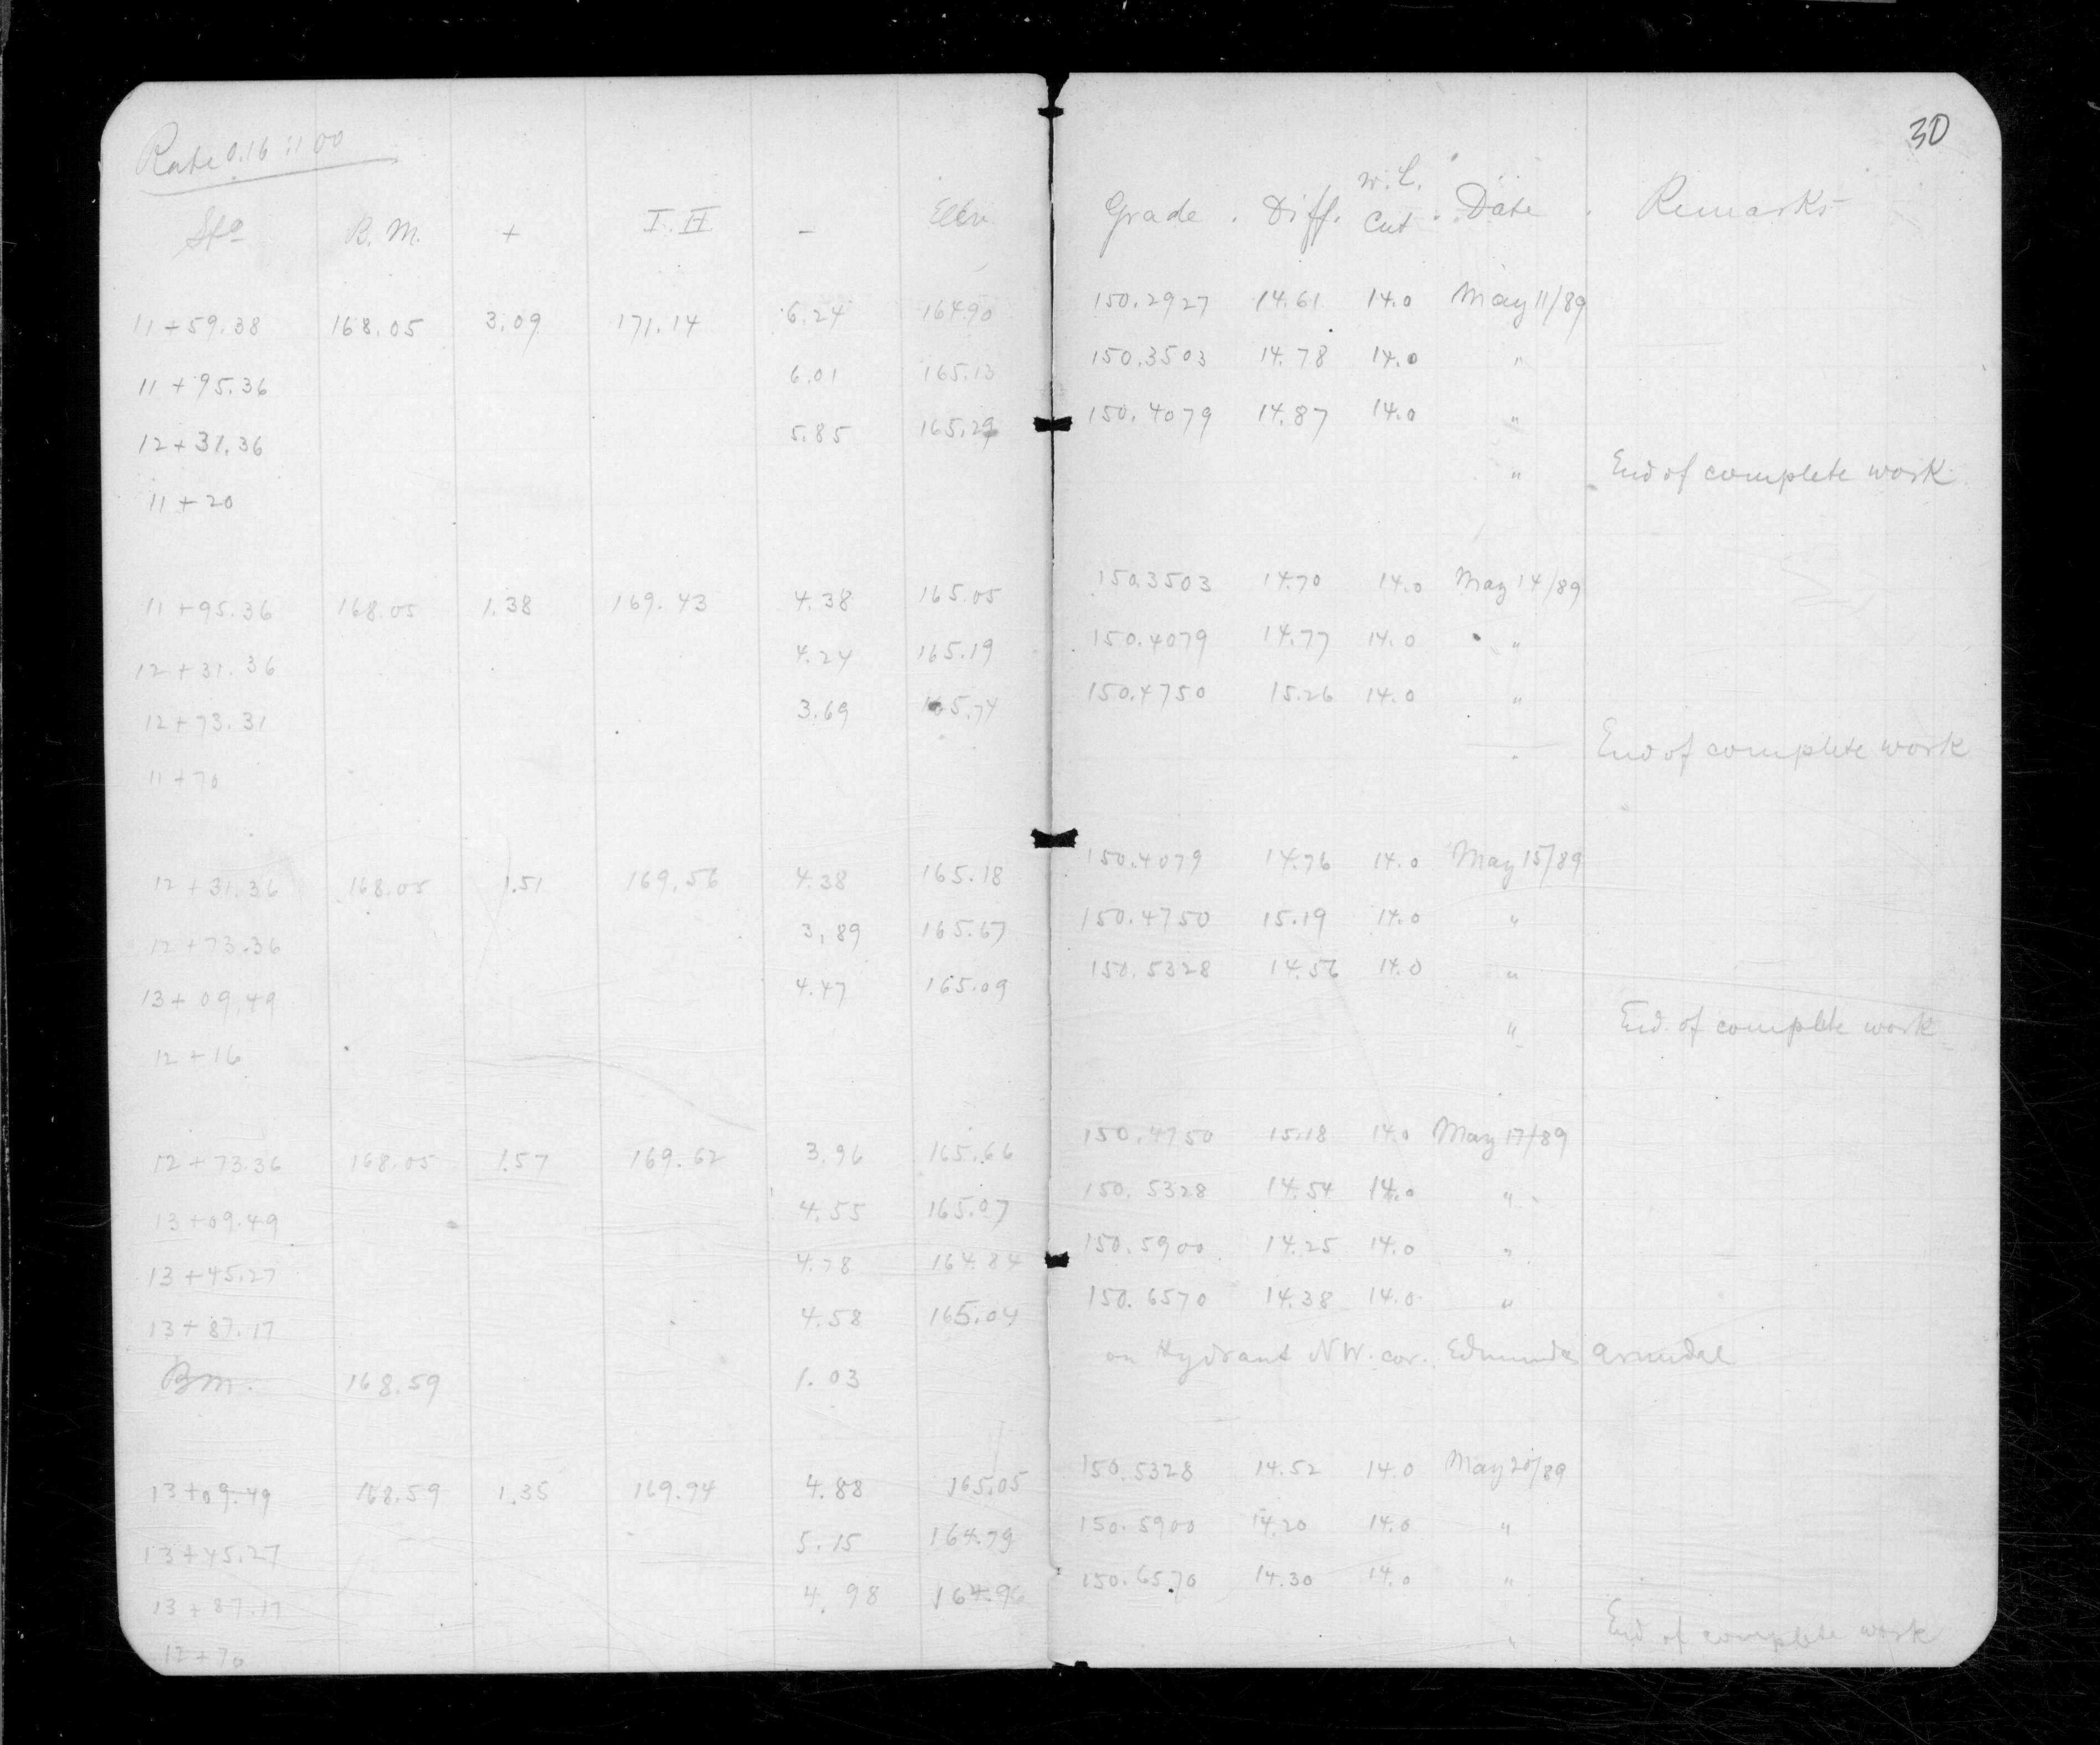 30
Rate 0.16 : 100
Sta B. M. + I. H - Elev. Grade. Diff. W. L. Cut. Date. Remarks
11+59.38 168.05 3.09 171.14 6.24 164.90 150.2927 14.61 14.0 May 11/89
11+95.36 6.01 165.13 150.3503 14.78 14.0 "
12+31.36 5.85 165.29 150.4079 14.87 14.0 "
11+20 " End of complete work
11+95.36 168.05 1.38 169.43 4.38 165.05 150.3503 14.70 14.0 May 14/89
12+31.36 4.24 165.19 150.4079 14.77 14.0 "
12+73.31 3.69 165.74 150.4750 15.26 14.0 "
11+70 " End of complete work
12+31.36 168.05 1.51 169.56 4.38 165.18 150.4079 14.76 14.0 May 15/89
12+73.36 3.89 165.67 150.4750 15.19 14.0 "
13+09.49 4.47 165.09 150.5328 14.56 14.0 "
12+16 " End of complete work
12+73.36 168.05 1.57 169.62 3.96 165.66 150.4750 15.18 14.0 May 17/89
13+09.49 4.55 165.07 150.5328 14.54 14.0 "
13+45.27 4.78 164.84 150.5900 14.25 14.0 "
13+87.17 4.58 165.04 150.6570 14.38 14.0 "
B.M. 168.59 1.03 on Hydrant N.W. cor. Edmund & Arundal
13+09.49 168.59 1.35 169.94 4.88 165.05 150.5328 14.52 14.0 May 20/89
13+45.27 5.15 164.79 150.5900 14.20 14.0 "
13+87.17 4.98 164.96 150.6570 14.30 14.0 "
12+70 " End of complete work